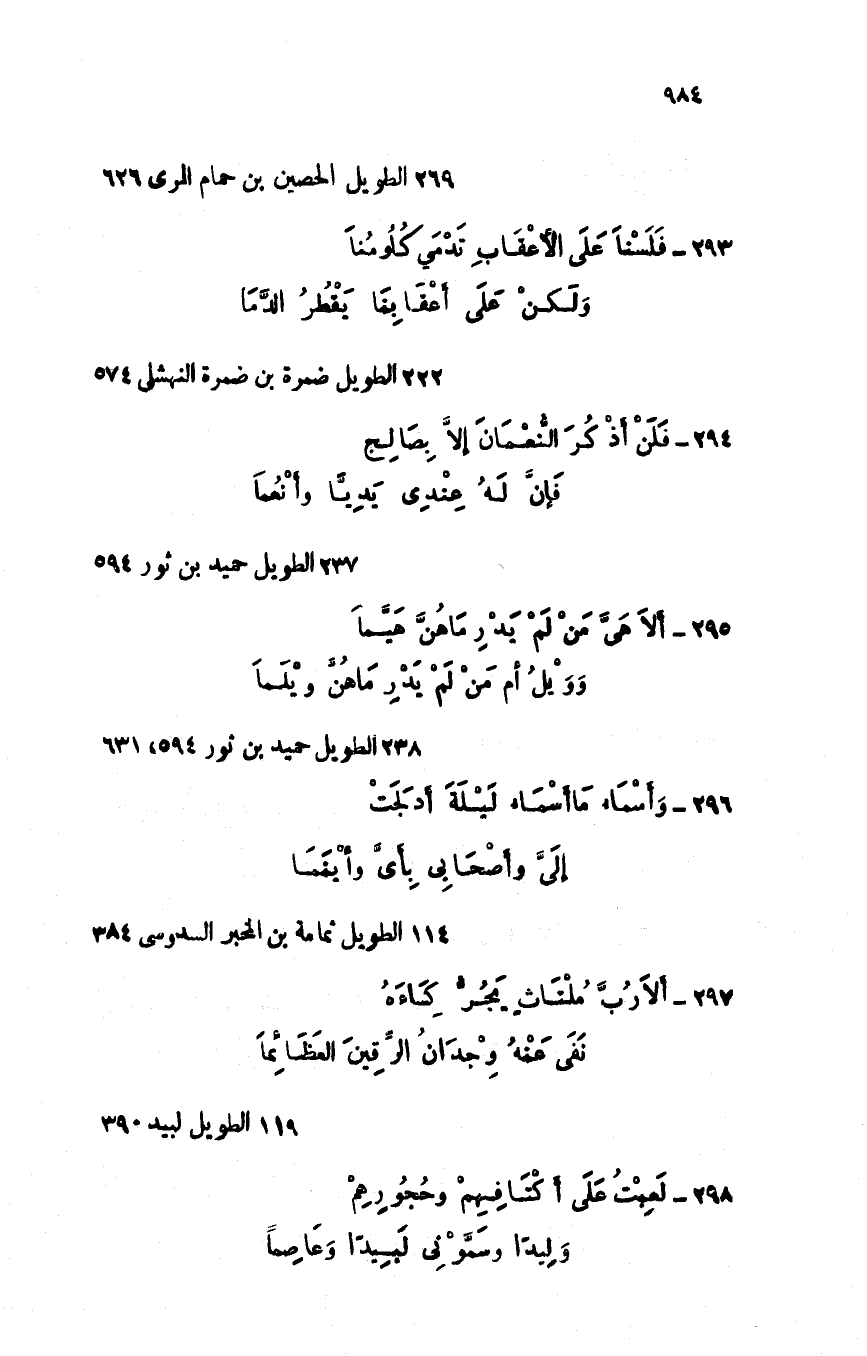 ٩٨٤
٢٦٩ الطويل الحصين بن حمام المرى ٦٢٦
٢٩٣ ـ فَلَسْناَ عَلَى الأَعْقَابِ تَدْمَي كُلُومُناَ
وَلَـكِـنْ عَلَى أَعْقَابِنَا يَقْطُرُ الدَّمَا
٢٢٢ الطويل ضمرة بن ضمرة النهشلى ٥٧٤
٢٩٤ ـ فَلَنْ أَذْ كُرَ النُّعْمَانَ إلاَّ بِصَالِـحٍ
فَإنَّ لَـهُ عِنْدِى يَدِيـًّا وأَنْعُماَ
٢٣٧ الطويل حميد بن ثور ٥٩٤
٢٩٥ ـ أَلاَ هَىَّ مَنْ لَمْ يَدْرِ مَاهُنَّ هَيَّـماَ
وَوَيْلُ أم مَنْ لَمْ يَدْرِ مَاهُنَّ ويْلَـماَ
٢٣٨ الطويل حميد بن ثور ٥٩٤، ٦٣١
٢٩٦ ـ وَأَسْمَاء مَاأَسْمَـاء لَيْـلَةَ أَدلَجَتْ
إلَىَّ وأَصْحَابِى بِأَىَّ وأَيْنَمَـا
١١٤ الطويل ثمامة بن المخبر السدوسى ٣٨٤
٢٩٧ ـ ألاَ رُبَّ مُلْتَـاثٍ يَجُـرُّ كِسَاءَهُ
نَفَى عَنْهُ وِجْدَانُ الرِّقِينَ العَظَـائِماَ
١١٩ الطويل لبيد ٣٩٠
٢٩٨ ـ لَعِبْتُ عَلَى أَ كْتَـافِـهِمْ وحُجُورِهِمْ
وَلِيدًا وسَمَّوْنِى لَبِيـدًا وَعَاصِماً